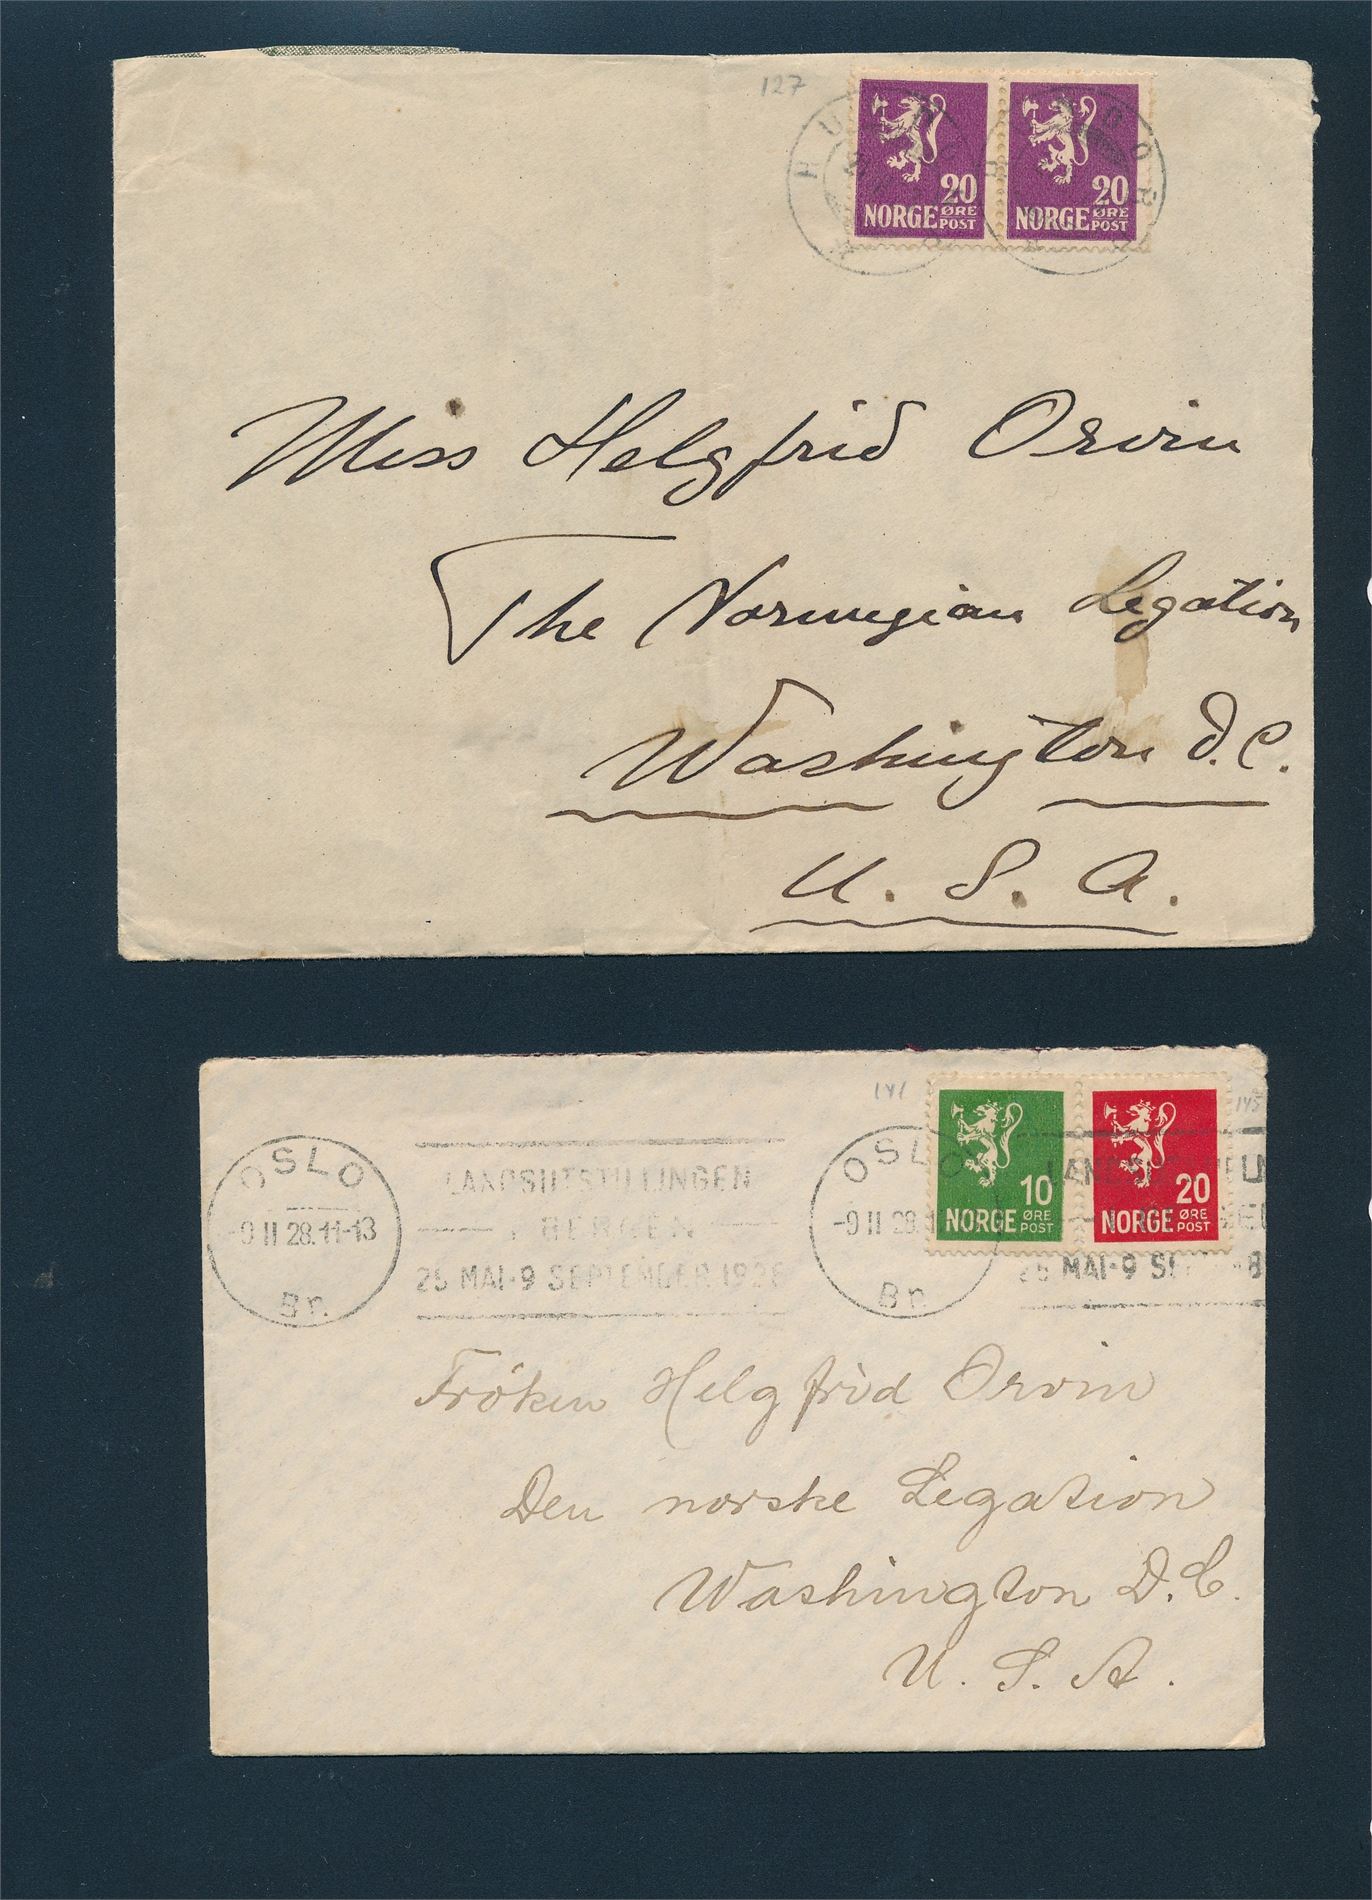 127
20
NORGE ØRE POST
20
NORGE ØRE POST
Miss Helgfrid Orvin
The Norwegian Legation
Washington D.C.
U. S. A.
141
145
OSLO
-9 II 28.11-13
Br.
LANDSUTSTILLINGEN
I BERGEN
25 MAI-9 SEPTEMBER 1928
OSLO
-9 II 28.
Br.
10
NORGE ØRE POST
20
NORGE ØRE POST
25 MAI-9 SE
Fröken Helgfrid Orvin
Den norske Legation
Washington D.C.
U. S. A.